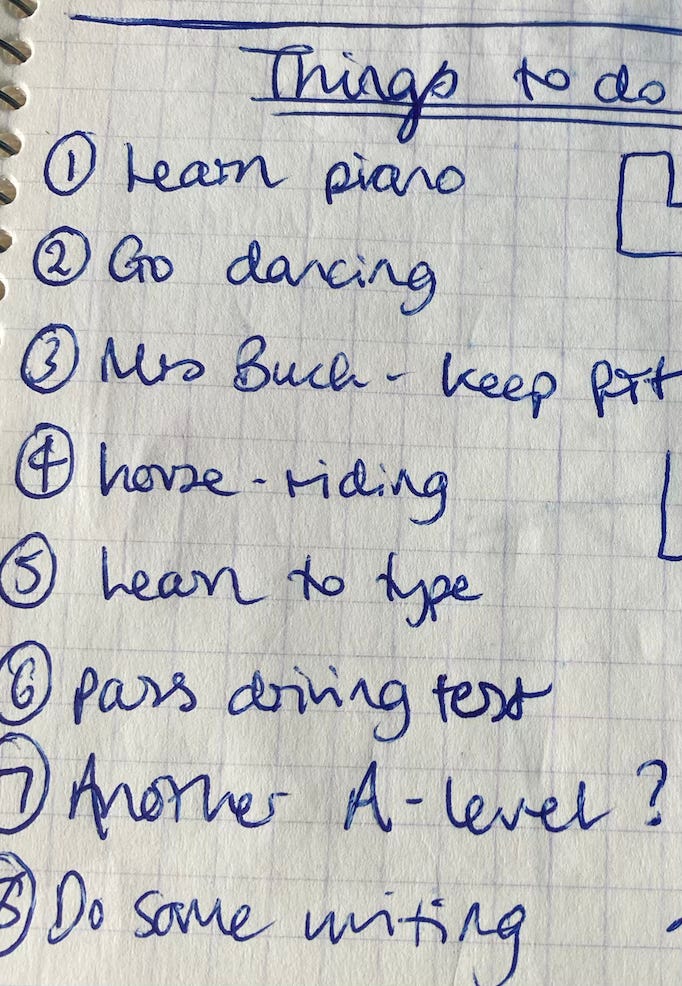 Things to do
① Learn piano
② Go dancing
③ Mrs Buch - keep fit
④ horse-riding
⑤ Learn to type
⑥ pass driving test
⑦ Another A-level?
⑧ Do some writing